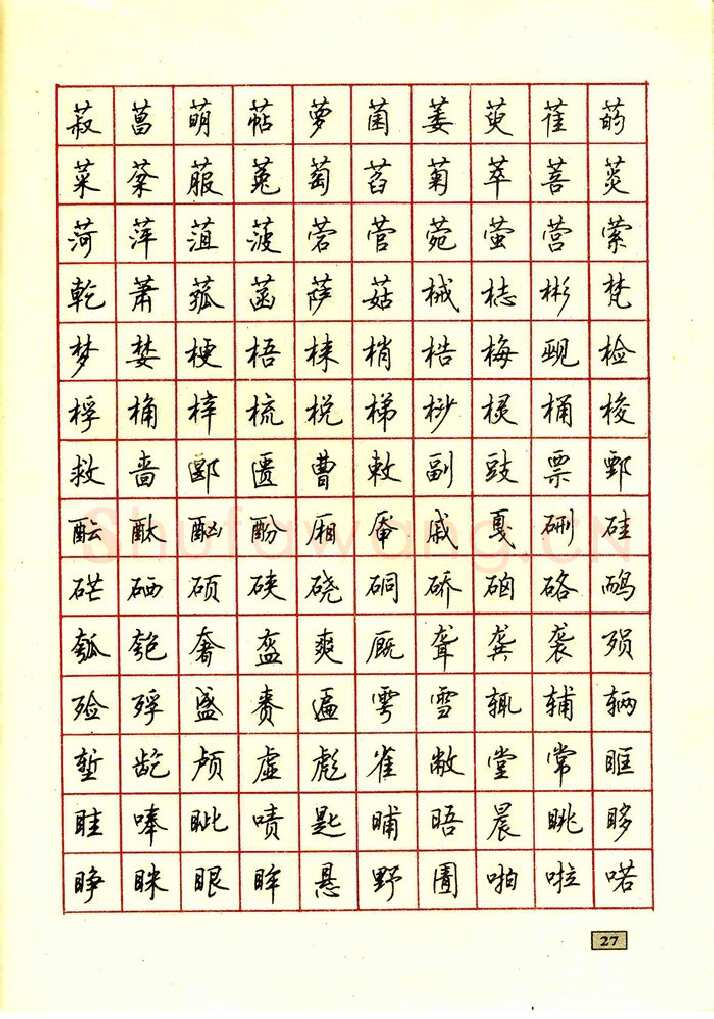 菽 菖 萌 萜 萝 菌 萎 萸 萑 菂
菜 棻 菔 菟 萄 萏 菊 萃 菩 菼
菏 萍 菹 菠 菪 菅 菀 萤 营 萦
乾 萧 菰 菡 萨 菇 械 梽 彬 梵
梦 婪 梗 梧 梾 梢 梏 梅 觋 检
桴 桷 梓 梳 棁 梯 桫 棂 桶 梭
救 啬 郾 匮 曹 敕 副 豉 票 鄄
酝 酞 酗 酚 厢 厣 戚 戛 硎 硅
硭 硒 硕 硖 硗 硐 硚 硇 硌 鸸
瓠 匏 奢 盔 爽 厩 聋 龚 袭 殒
殓 殍 盛 赉 匾 雩 雪 辄 辅 辆
堑 龁 颅 虚 彪 雀 敝 堂 常 眶
眭 唪 眦 啧 匙 晡 晤 晨 眺 眵
睁 眯 眼 眸 悬 野 圊 啪 啦 喏
27
Shufawang.CN